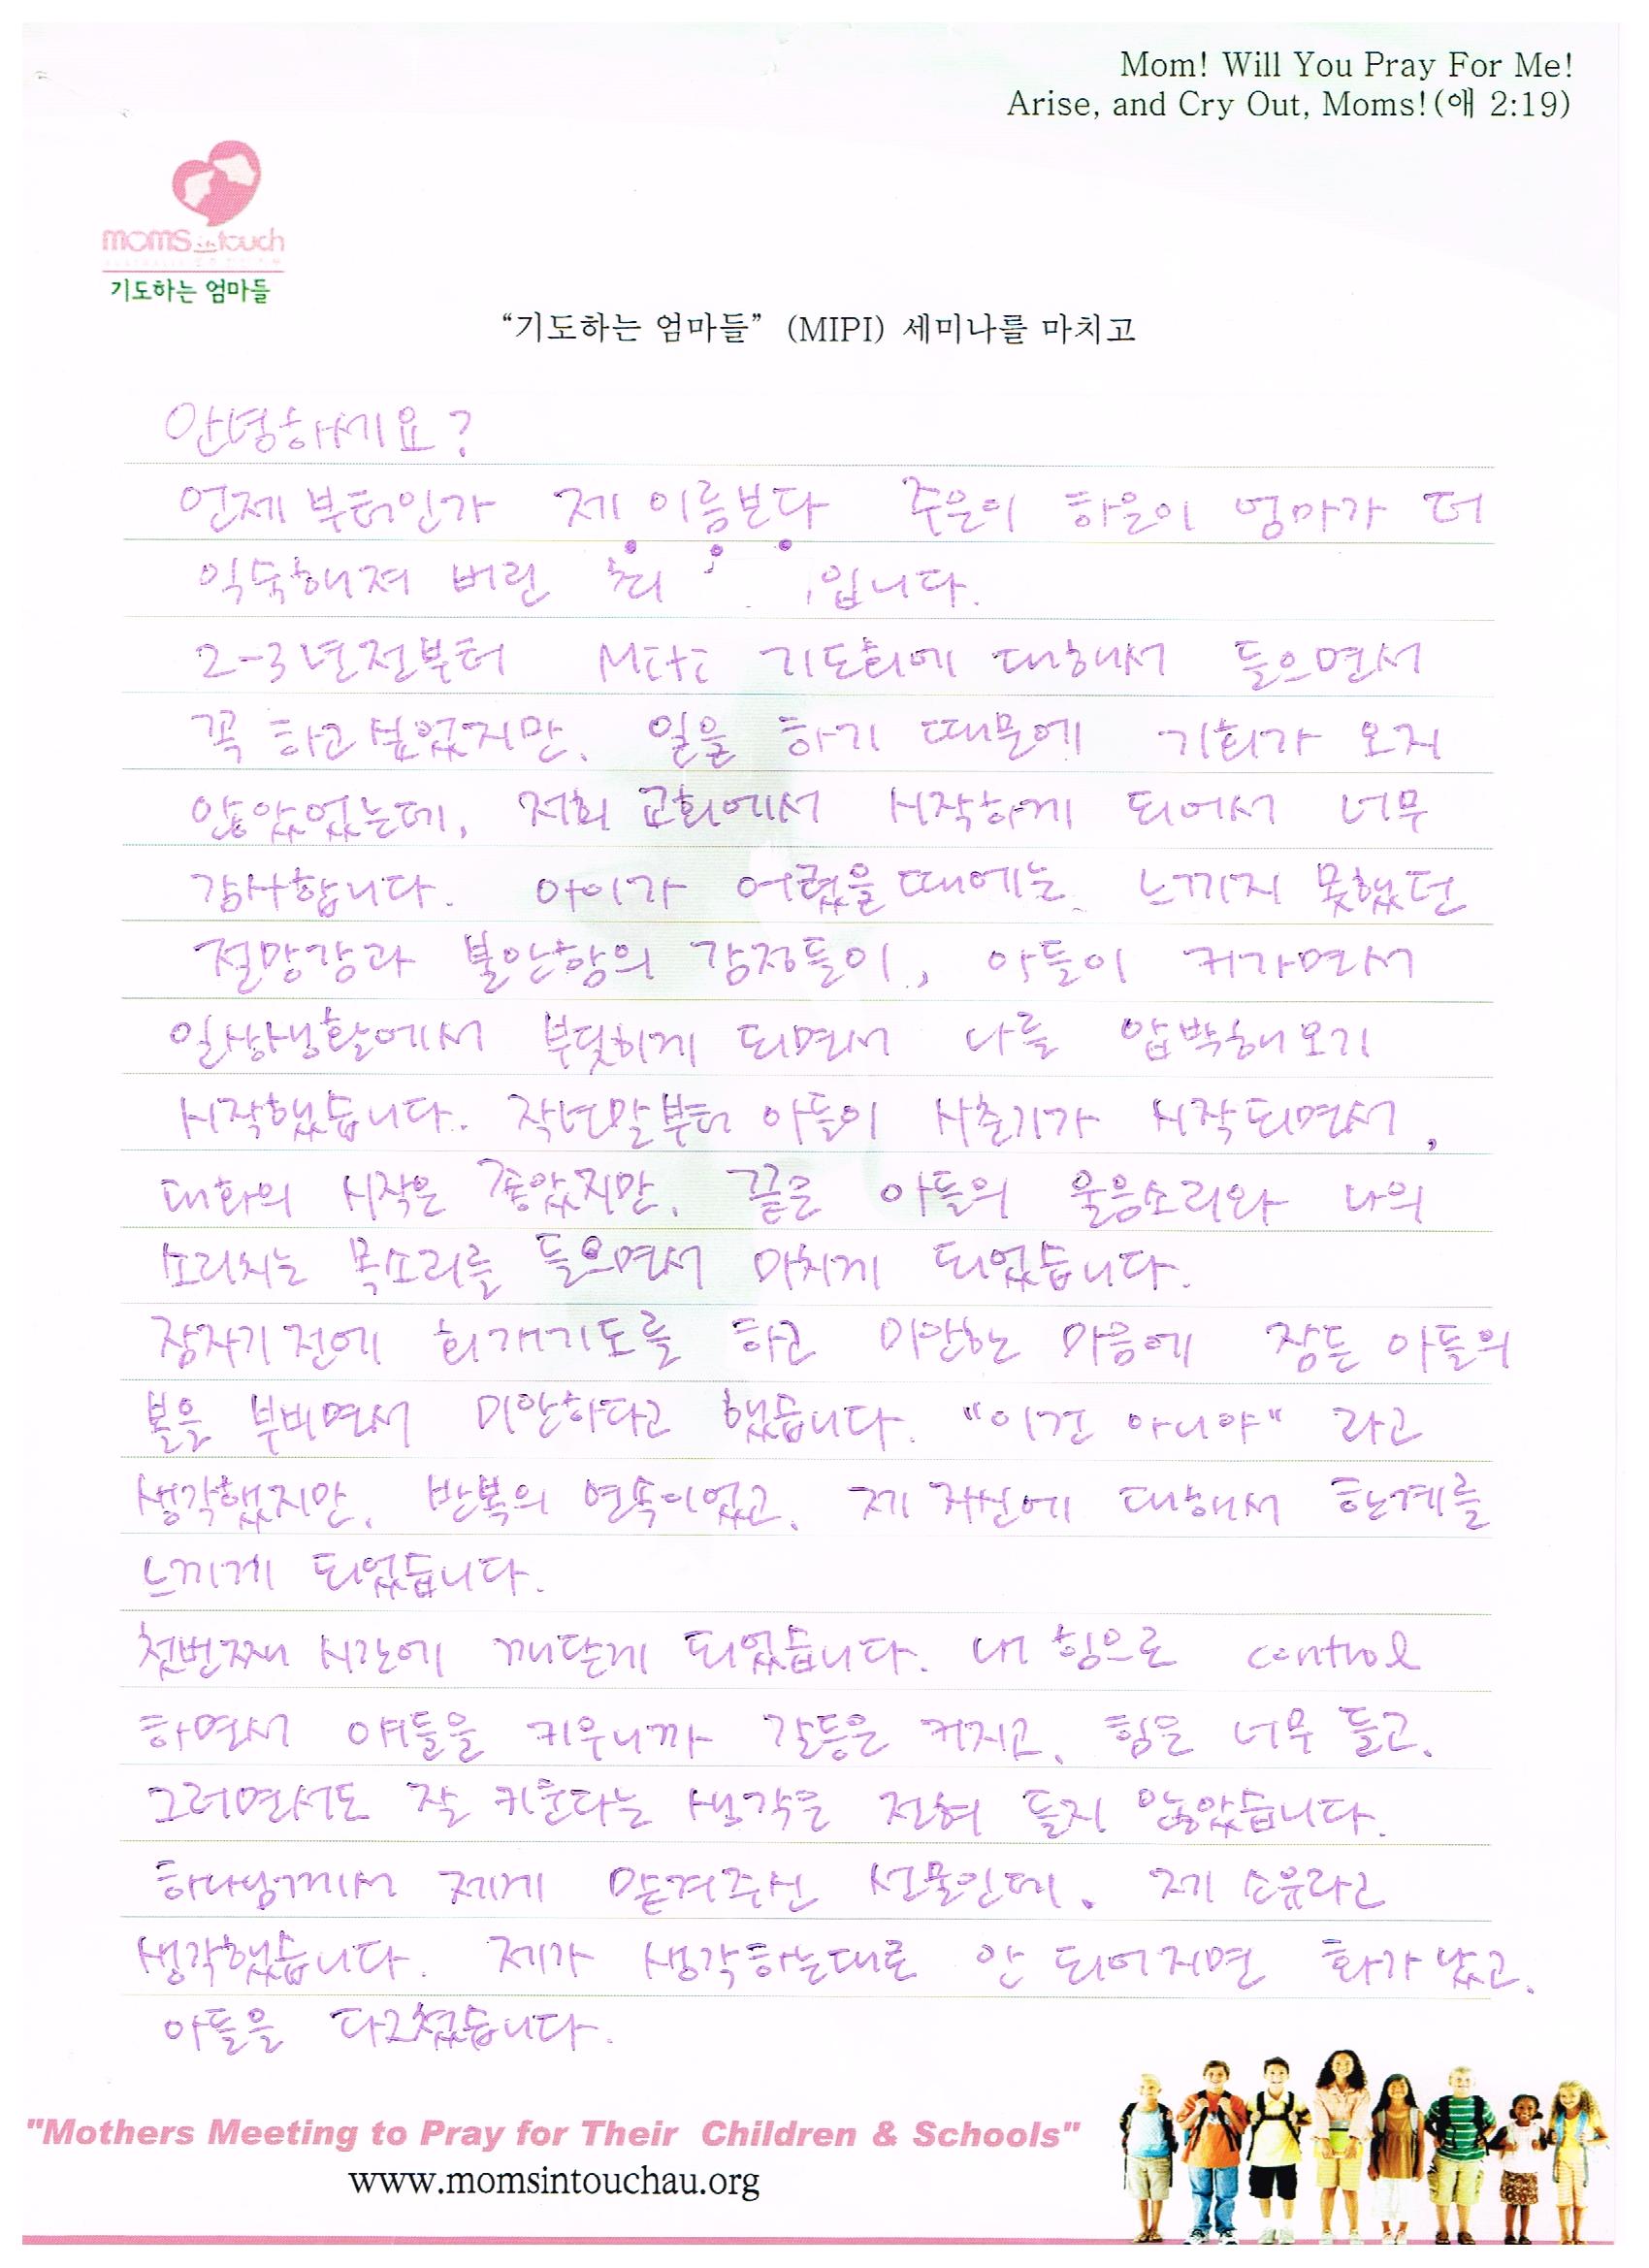 Mom! Will You Pray For Me!
Arise, and Cry Out, Moms!(애 2:19)
moms in touch
기도하는 엄마들
“기도하는 엄마들” (MIPI) 세미나를 마치고
안녕하세요?
언제 부터인가 제 이름보다 주은이 하은이 엄마가 더
익숙해져 버린 최 입니다.
2-3년전부터 Miti 기도회에 대해서 들으면서
꼭 하고 싶었지만, 일을 하기 때문에 기회가 오지
않았었는데, 저희 교회에서 시작하게 되어서 너무
감사합니다. 아이가 어렸을 때에는 느끼지 못했던
절망감과 불안함의 감정들이, 아들이 커가면서
일상생활에서 부딪히게 되면서 나를 압박해 오기
시작했습니다. 작년말부터 아들이 사춘기가 시작되면서,
대화의 시작은 좋았지만, 끝은 아들의 울음소리와 나의
소리치는 목소리를 들으면서 마치게 되었습니다.
잠자기 전에 회개기도를 하고 미안한 마음에 잠든 아들의
볼을 부비면서 미안하다고 했습니다. "이건 아니야" 라고
생각했지만, 반복의 연속이었고, 제 자신에 대해서 한계를
느끼게 되었습니다.
첫번째 시간에 깨닫게 되었습니다. 내 힘으로 control
하면서 애들을 키우니까 갈등은 커지고, 힘은 너무 들고,
그러면서도 잘 키운다는 생각은 전혀 들지 않았습니다.
하나님께서 제게 맡겨주신 선물인데, 제 소유라고
생각했습니다. 제가 생각하는대로 안 되어지면 화가 났고,
아들을 다그쳤습니다.
"Mothers Meeting to Pray for Their Children & Schools"
www.momsintouchau.org